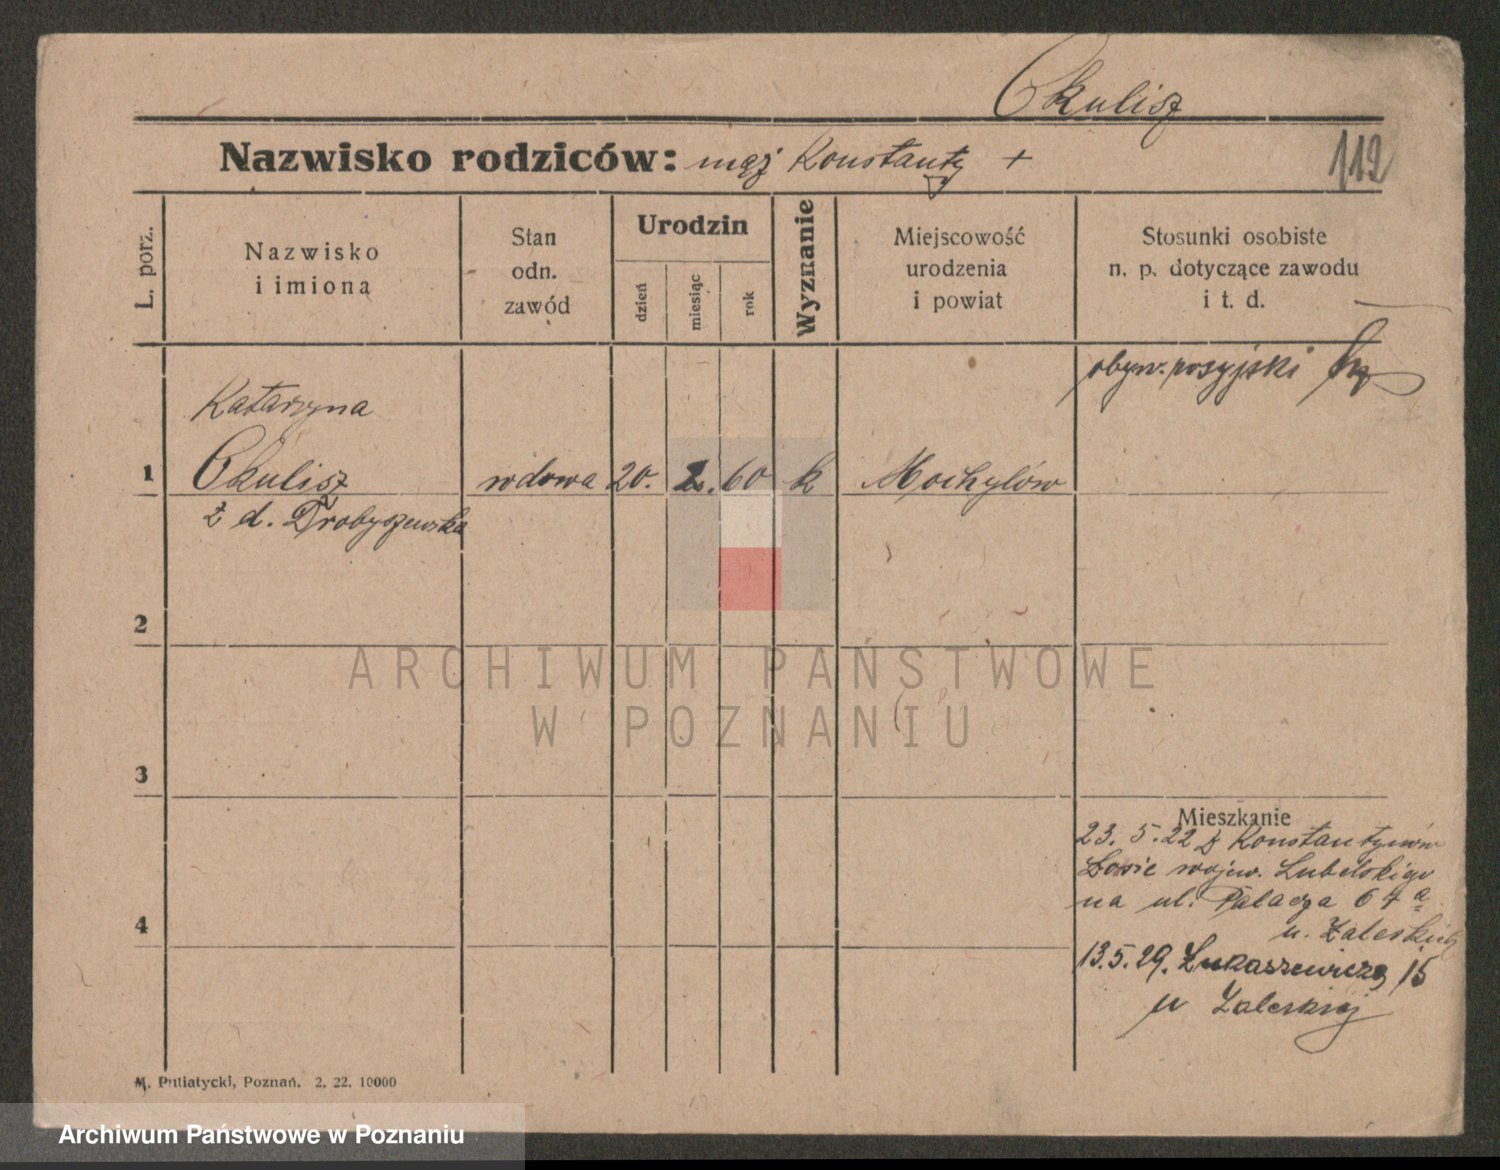 Okulisz
Nazwisko rodziców: mąż Konstanty +
112
L. porz.
Nazwisko
i imiona
Stan
odn.
zawód
Urodzin
dzień
miesiąc
rok
Wyznanie
Miejscowość
urodzenia
i powiat
Stosunki osobiste
n. p. dotyczące zawodu
i t. d.
obyw. rosyjski
Katarzyna
1 Okulisz wdowa 20. 2. 60 k Mochylów
z d. Drobyszewska
2
ARCHIWUM PAŃSTWOWE
W POZNANIU
3
Mieszkanie
23. 5. 22 z Konstantynów
wojew. Lubelskiego
na ul. Palacza 67a
4
u. Zaleskich
13.5.29. Łukaszewicza 15
u Zaleskiej
M. Putiatycki, Poznań. 2. 22. 10000
Archiwum Państwowe w Poznaniu